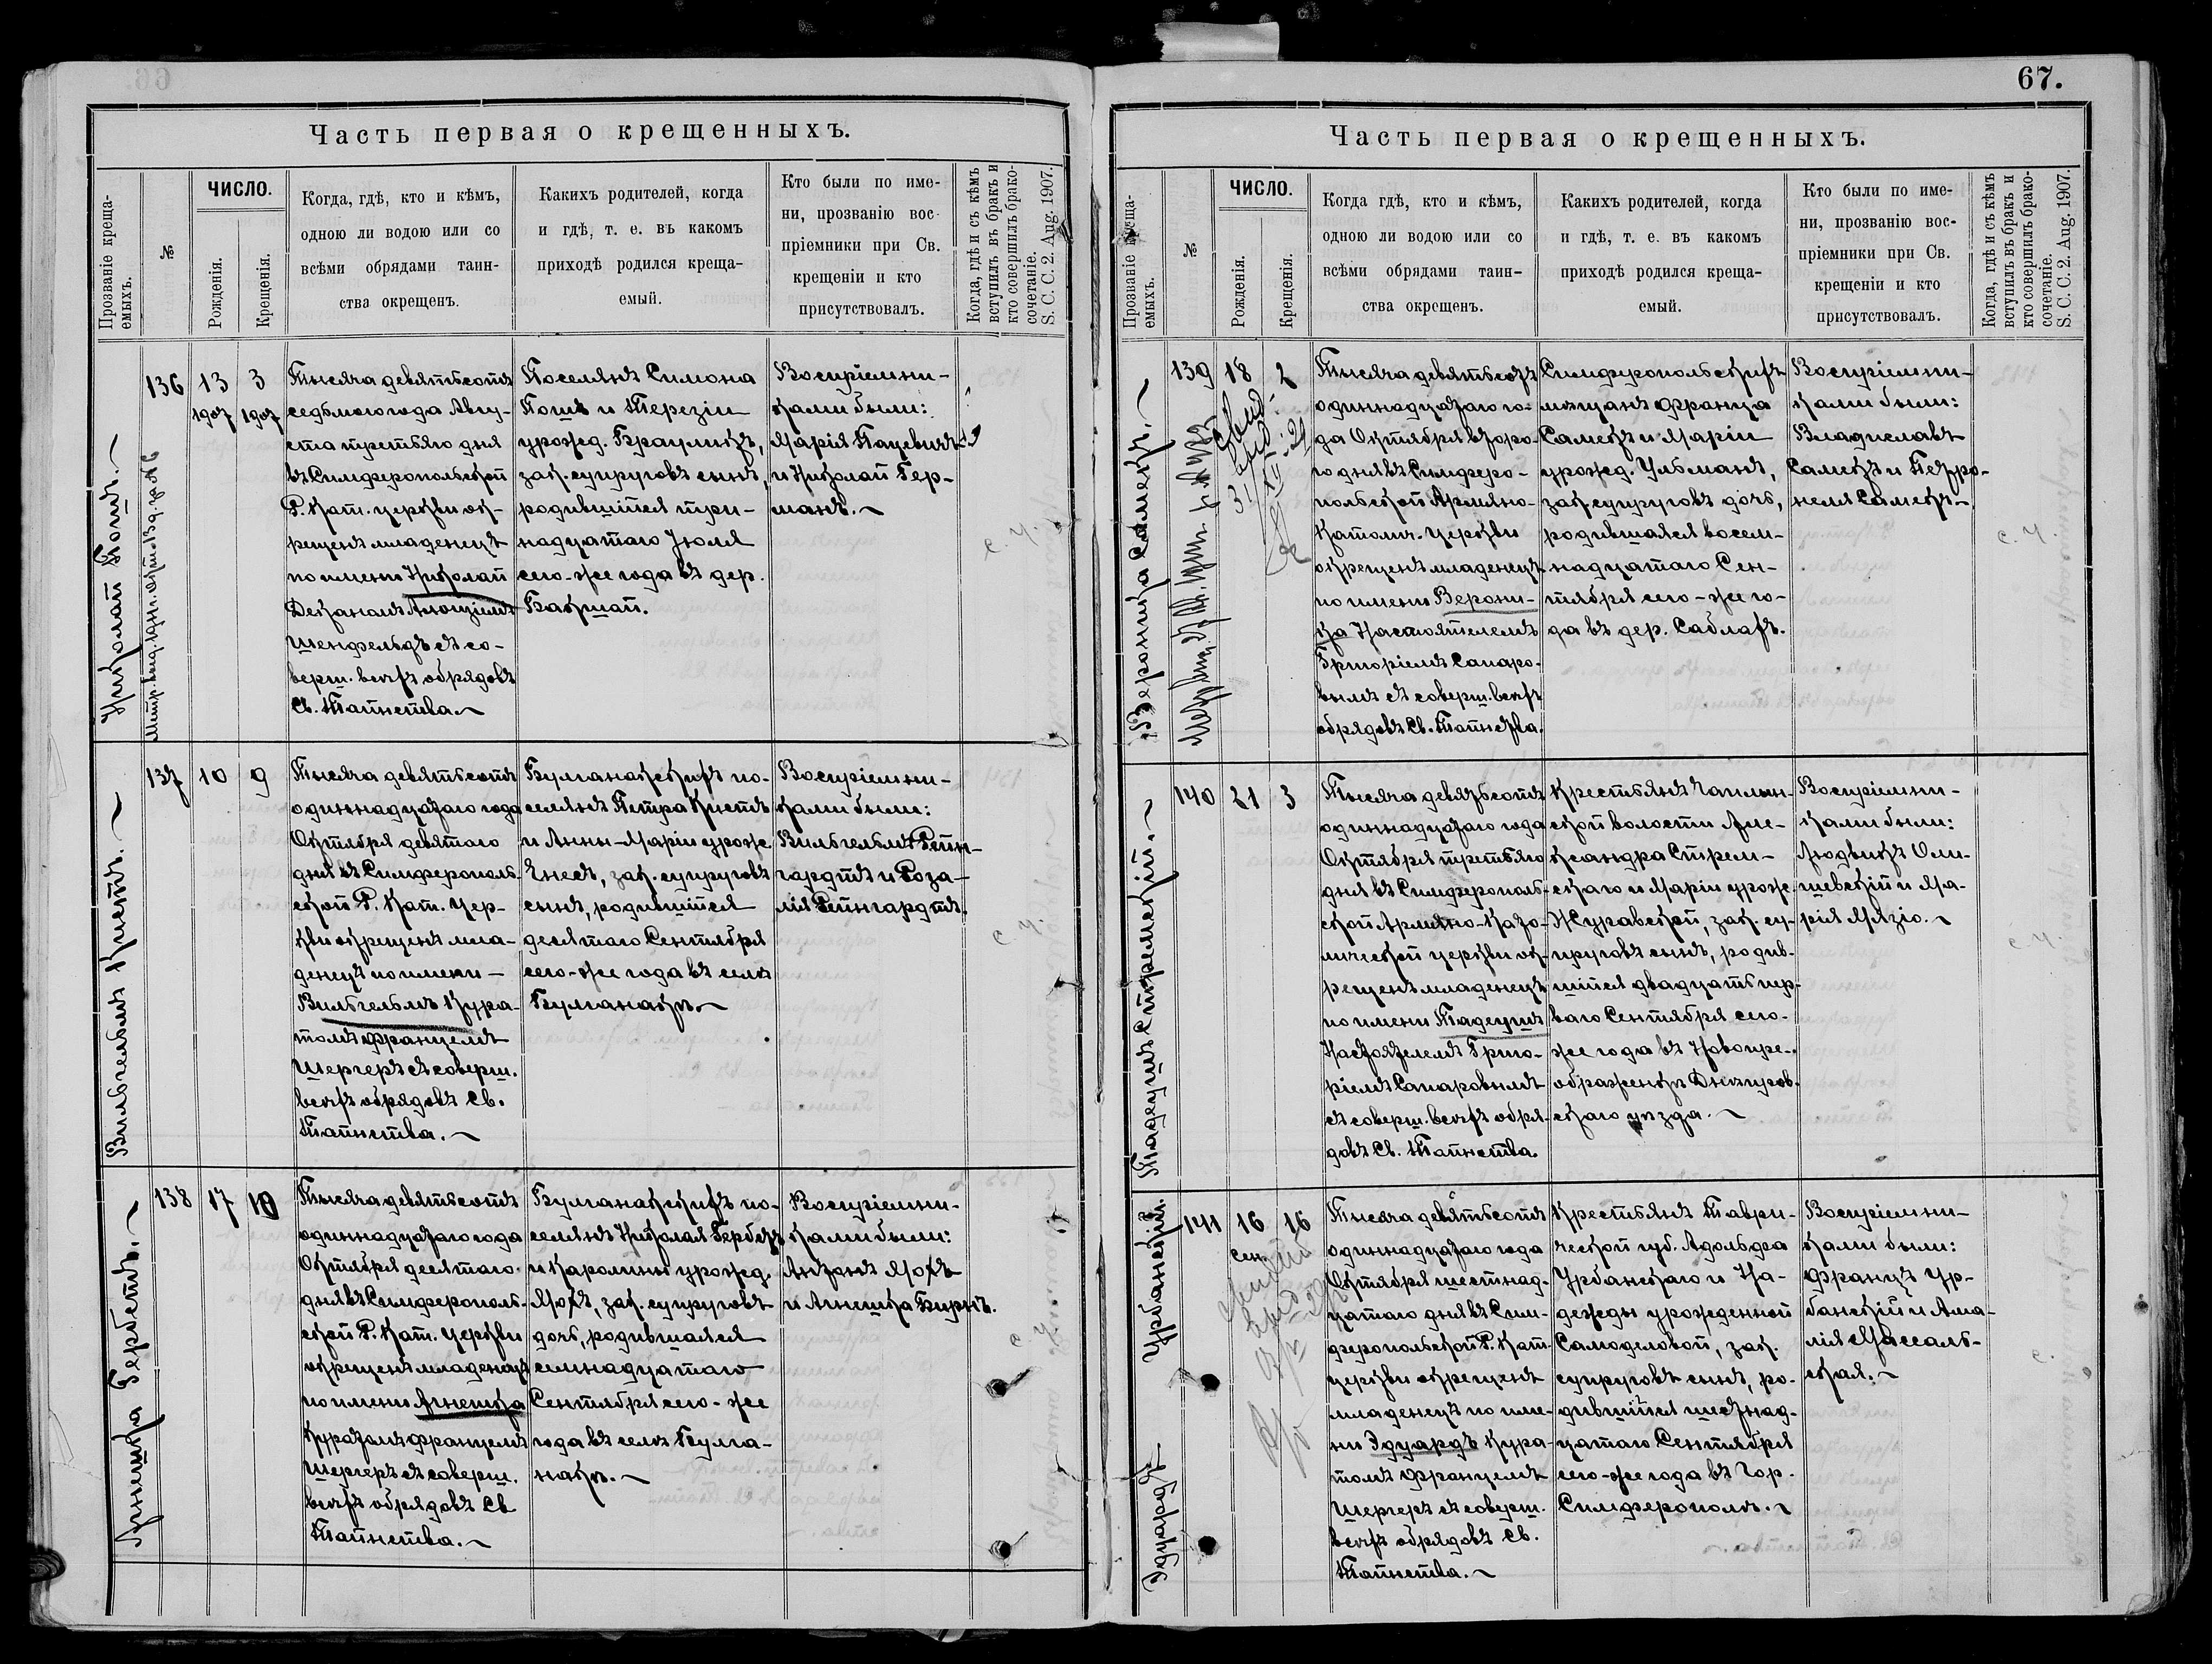 67.
Часть первая о крещенныхъ.
Прозваніе креща-
емыхъ.
№
ЧИСЛО.
Рожденія.
Крещенія.
Когда, гдѣ, кто и кѣмъ,
одною ли водою или со
всѣми обрядами таин-
ства окрещенъ.
Какихъ родителей, когда
и гдѣ, т. е. въ какомъ
приходѣ родился креща-
емый.
Кто были по име-
ни, прозванію вос-
пріемники при Св.
крещеніи и кто
присутствовалъ.
Когда, гдѣ и съ кѣмъ
вступилъ въ бракъ и
кто совершилъ брако-
сочетаніе.
S. C. C. 2. Aug. 1907.
Николай Пошъ.
136
13
1907
3
1907
Тысяча девятьсотъ
седьмого года Авгу-
ста третьяго дня
въ Симферопольской
Р. Кат. церкви ок-
рещенъ младенецъ
по имени Николай
Деканомъ Алоизіемъ
Шенфельдъ съ со-
верш. всѣхъ обрядовъ
Св. Таинства.
Поселянъ Симона
Пошъ и Терезіи
урожд. Брауликъ,
зак. супруговъ сынъ,
родившійся три-
надцатаго Іюля
сего-же года въ дер.
Бакшай.
Воспріемни-
ками были:
Марія Пацевичъ
и Николай Гер-
манъ.
с. ч.
Вильгельмъ Кистъ.
137
10
9
Тысяча девятьсотъ
одиннадцатаго года
Октября девятаго
дня въ Симферополь-
ской Р. Кат. цер-
кви окрещенъ мла-
денецъ по имени
Вильгельмъ Кура-
томъ Францемъ
Шергеръ съ соверш.
всѣхъ обрядовъ Св.
Таинства.
Булганакскихъ по-
селянъ Петра Кистъ
и Анны-Маріи урожд.
Энесъ, зак. супруговъ
сынъ, родившійся
десятаго Сентября
сего-же года въ селѣ
Булганакъ.
Воспріемни-
ками были:
Вильгельмъ Рейн-
гардтъ и Роза-
лія Рейнгардтъ.
с. ч.
Агнешка Гербстъ.
138
17
10
Тысяча девятьсотъ
одиннадцатаго года
Октября десятаго
дня въ Симферополь-
ской Р. Кат. церкви
окрещенъ младенецъ
по имени Агнешка
Куратомъ Францемъ
Шергеръ съ соверш.
всѣхъ обрядовъ Св
Таинства.
Булганакскихъ по-
селянъ Николая Гербстъ
и Каролины урожд.
зак. супруговъ
дочь, родившаяся
семнадцатаго
Сентября сего-же
года въ селѣ Булга-
накъ.
Воспріемни-
ками были:
Антонъ
и Агнешка Бирнъ.
с. ч.
Часть первая о крещенныхъ.
Прозваніе креща-
емыхъ.
№
ЧИСЛО.
Рожденія.
Крещенія.
Когда гдѣ, кто и кѣмъ,
одною ли водою или со
всѣми обрядами таин-
ства окрещенъ.
Какихъ родителей, когда
и гдѣ, т. е. въ какомъ
приходѣ родился креща-
емый.
Кто были по име-
ни, прозванію вос-
пріемники при Св.
крещеніи и кто
присутствовалъ.
Когда, гдѣ и съ кѣмъ
вступилъ въ бракъ и
кто совершилъ брако-
сочетаніе.
S. C. C. 2. Aug. 1907.
Вероника Самекъ.
139
18
2
Тысяча девятьсотъ
одиннадцатаго го-
да Октября второ-
го дня въ Симферо-
польской Армяно-
Католич. церкви
окрещенъ младенецъ
по имени Верони-
ка Настоятелемъ
Григоріемъ Сапаро-
вымъ съ соверш. всѣхъ
обрядовъ Св. Таинства.
Симферопольскихъ
мѣщанъ Франца
Самекъ и Маріи
урожд. Ульманъ,
зак. супруговъ дочь,
родившаяся восем-
надцатаго Сен-
тября сего-же го-
да въ дер. Саблахъ.
Воспріемни-
ками были:
Владиславъ
Самекъ и Петро-
неля Самекъ
с. ч.
Тадеушъ Стремскій.
140
21
3
Тысяча девятьсотъ
одиннадцатаго года
Октября третьяго
дня въ Симферополь-
ской Армяно-Като-
лической церкви ок-
рещенъ младенецъ
по имени Тадеушъ
Настоятелемъ Григо-
ріемъ Сапаровымъ
съ соверш. всѣхъ обря-
довъ Св. Таинства.
Крестьянъ
ской волости Але-
ксандра Стрем-
скаго и Маріи урожд.
Журавской, зак. су-
пруговъ сынъ, родив-
шійся двадцать пер-
ваго Сентября сего-
же года въ Новопре-
ображенкѣ Днѣпров-
скаго уѣзда.
Воспріемни-
ками были:
Людвикъ Оли-
шевскій и Ма-
рія Мязіо.
с. ч.
Эдуардъ Урбанскій.
141
16
Сен.
16
Тысяча девятьсотъ
одиннадцатаго года
Октября шестнад-
цатаго дня въ Сим-
феропольской Р. Кат.
церкви окрещенъ
младенецъ по име-
ни Эдуардъ Кура-
томъ Францемъ
Шергеръ съ соверш.
всѣхъ обрядовъ Св.
Таинства.
Крестьянъ Таври-
ческой губ. Адольфа
Урбанскаго и На-
дежды урожденной
Самоделовой, зак.
супруговъ сынъ, ро-
дившійся шестнад-
цатаго Сентября
сего-же года въ гор.
Симферополѣ.
Воспріемни-
ками были:
Францъ Ур-
банскій и Ама-
лія Массаль-
ская.
с.